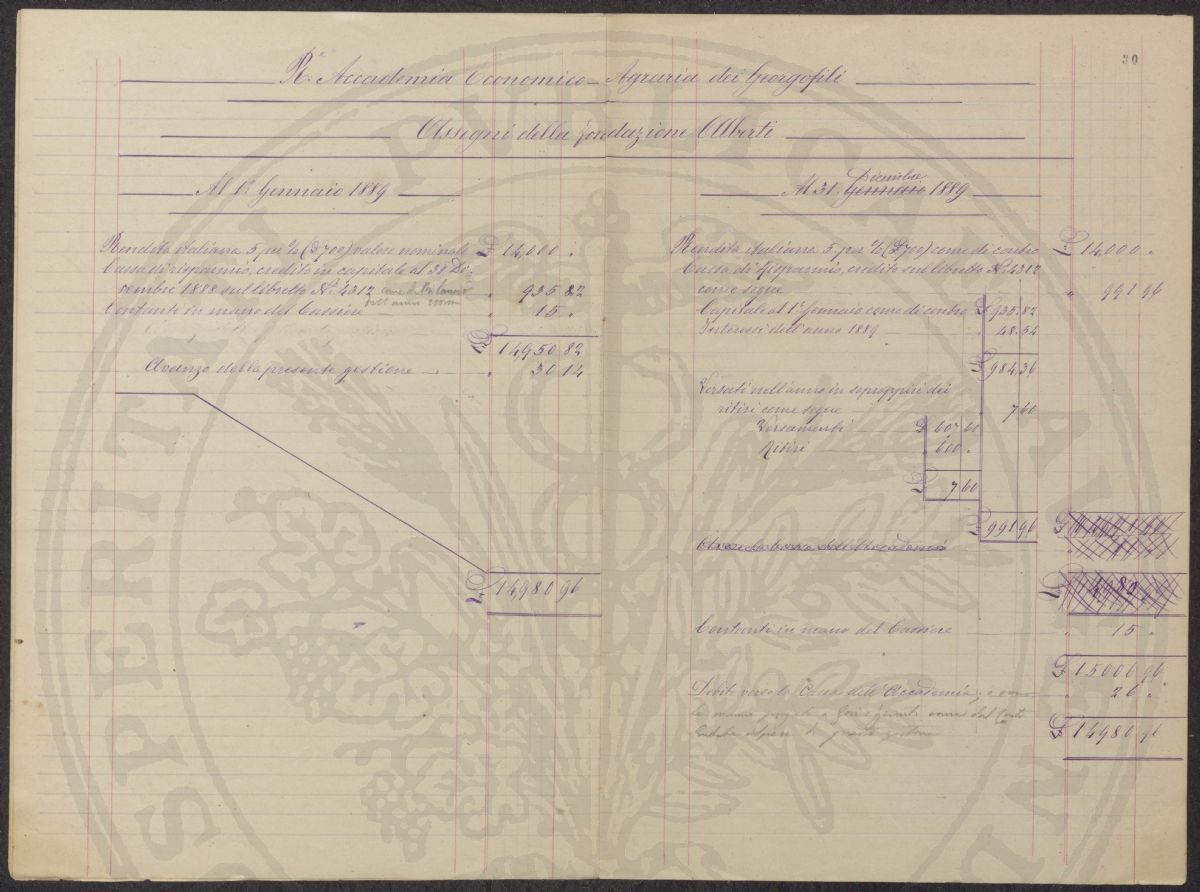 30
R.ª Accademia Economico-Agraria dei Georgofili
Assegni della fondazione Alberti
Al 1º Gennaio 1889
Rendita italiana 5 per % (£ 700) valore nominale £ 14,000 "
Cassa di risparmio, credito in capitale al 31 Di-
cembre 1888 sul libretto Nº 4312 come al Bilancio " 935 82
dell'anno
Contanti in mano del Cassiere " 15 "
£ 14,950 82
Avanzo della presente gestione " 30 14
£ 14,980 96
Al 31. Gennaio Dicembre 1889
Rendita italiana 5 per % (£ 700) come di contro £ 14,000 "
Cassa di Risparmio, credito sul libretto Nº 4312
come segue " 991 96
Capitale al 1º Gennaio come di contro £ 935.82
Interessi dell'anno 1889 " 48.54
£ 984.36
Versati nell'anno in soprappiù dei
ritiri come segue " 7 60
Versamenti £ 607.60
Ritiri " 600 "
£ 7 60
£ 991.96
£ 4980
Contanti in mano del Cassiere " 15 "
£ 15006 96
Debito verso la Cassa dell'Accademia, " 26 "
£ 14980 96